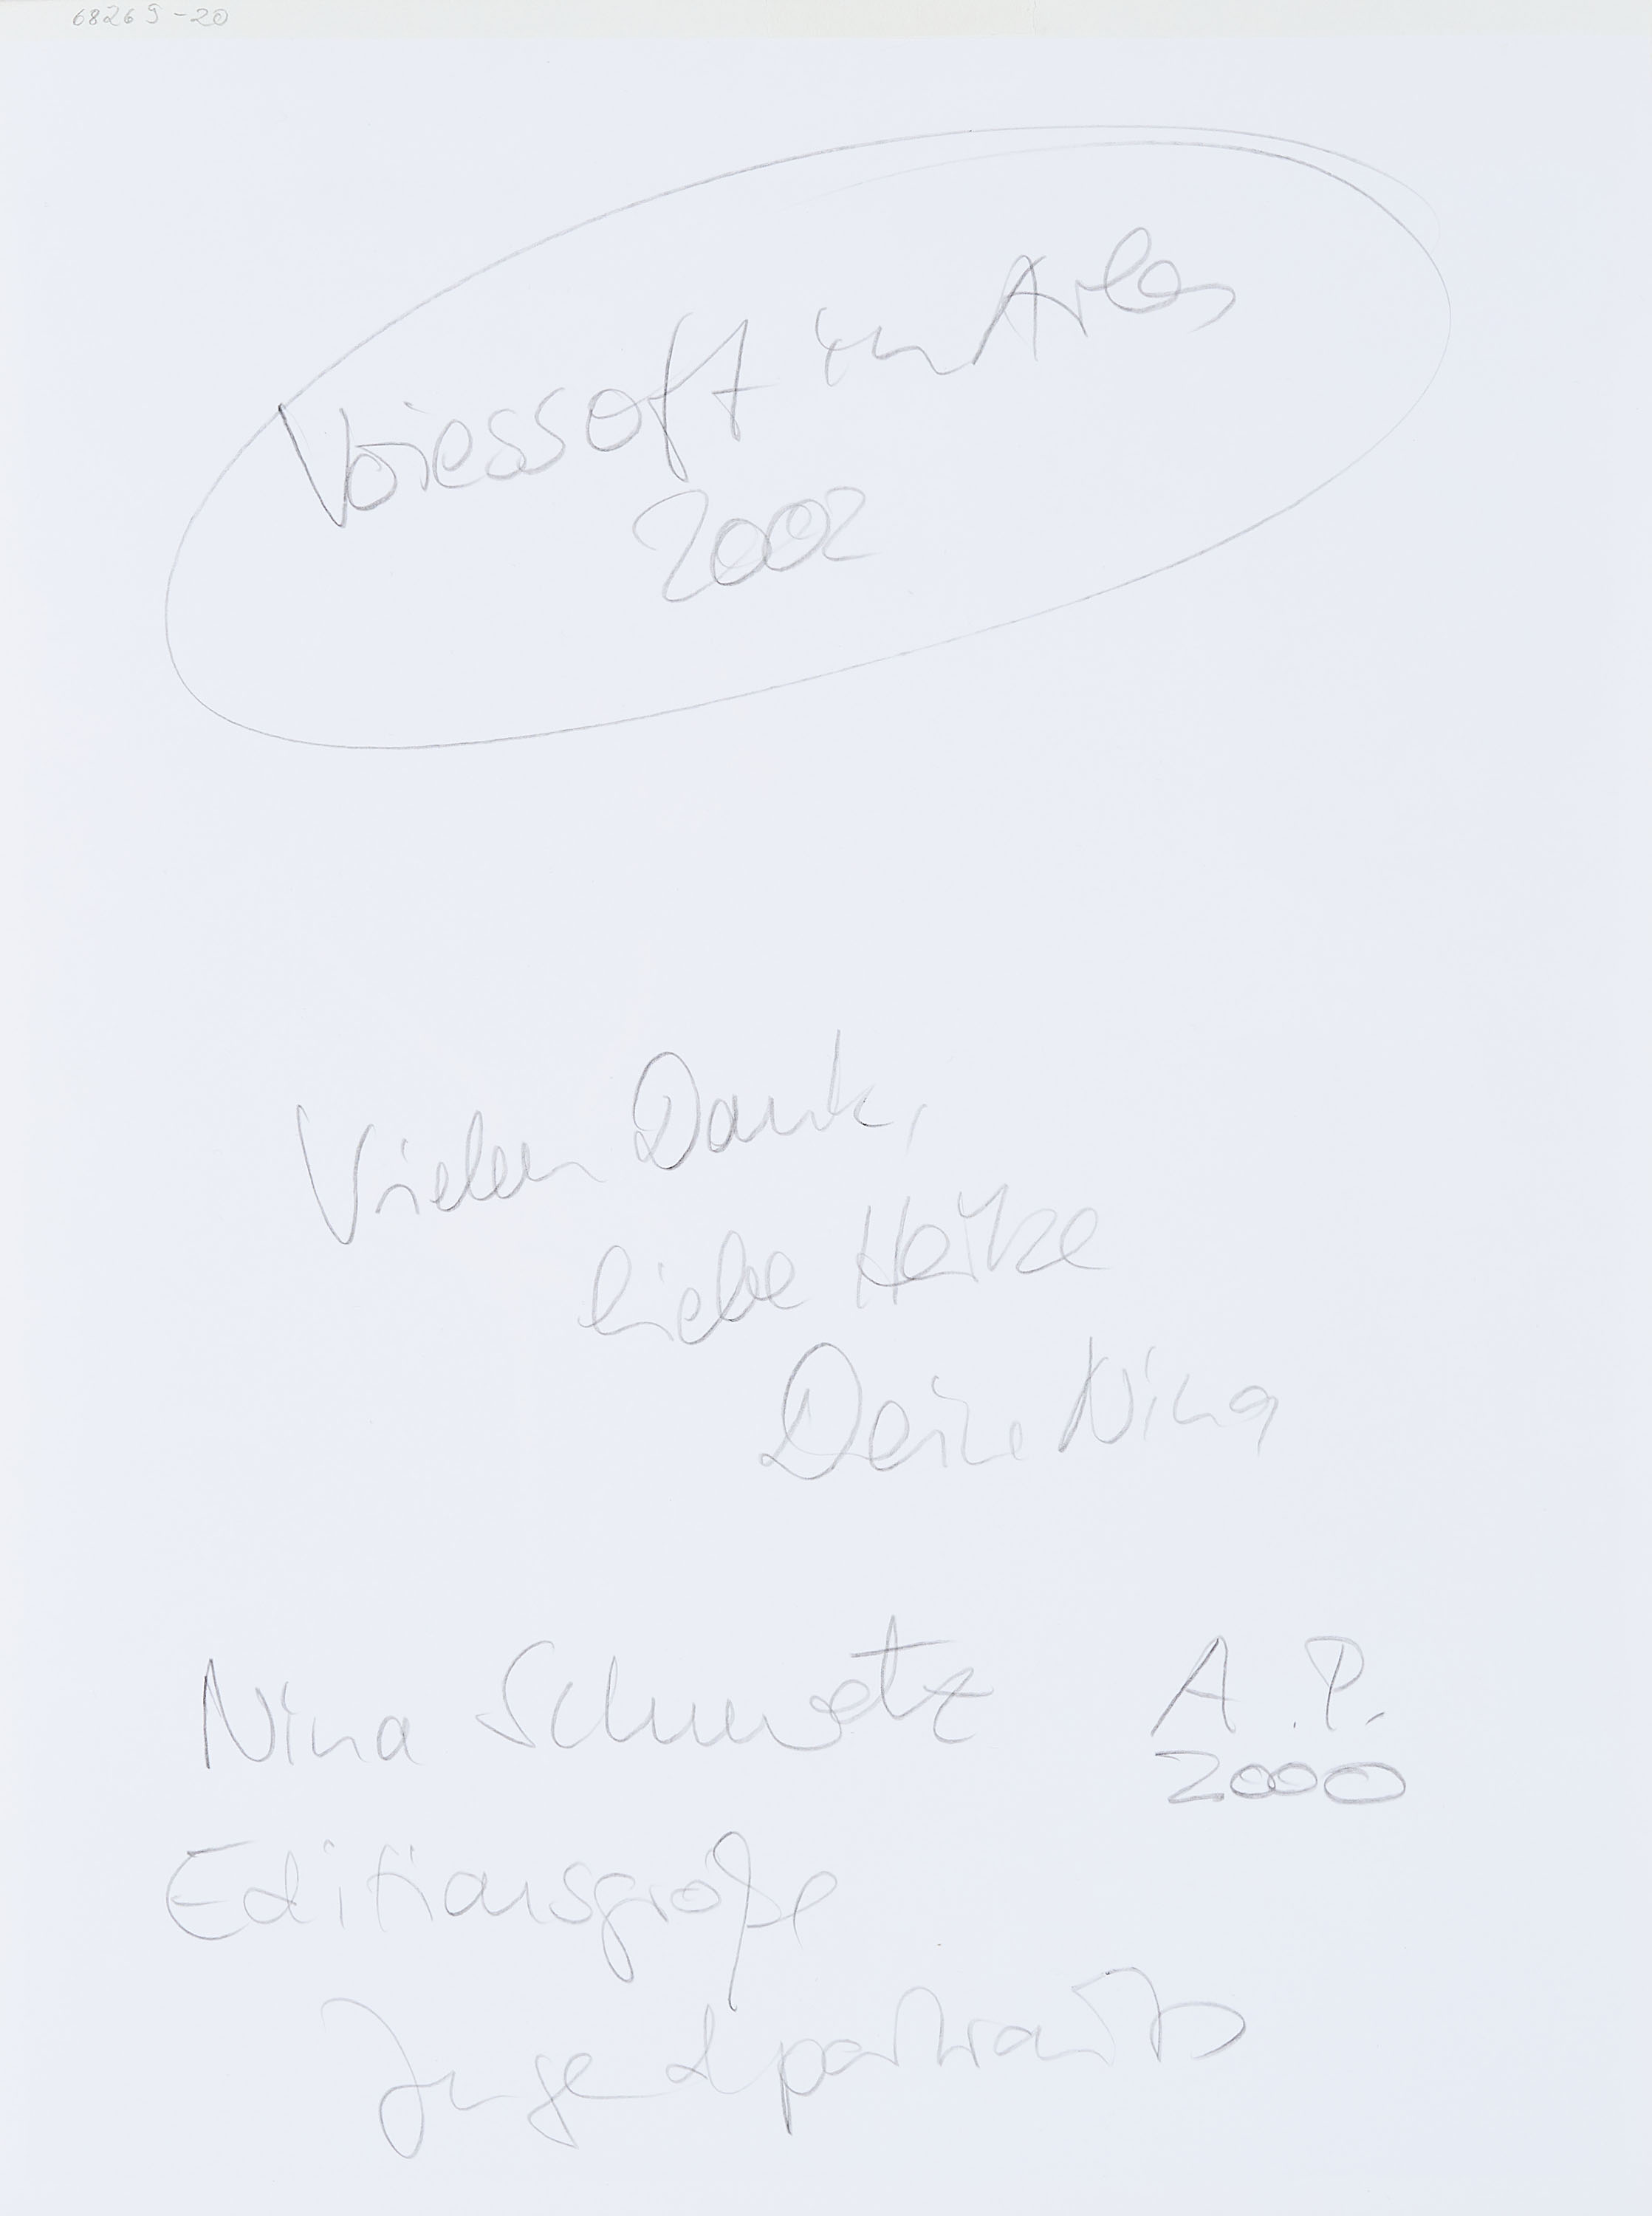 68269-20
Voies Off in Arles
2002
Vielen Dank,
liebe Heike
Deine Nina
Nina Schmitz A.P.
2000
Editionsgröße
Jugendportraits